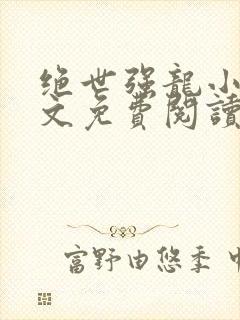 绝世强龍小
文免費閱讀
富野由悠季 中